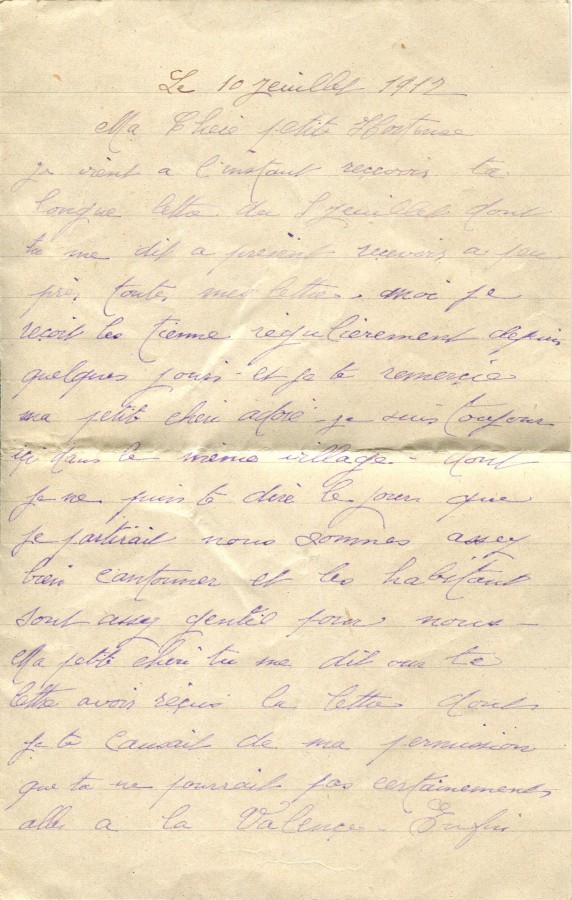 Le 10 Jeuillet 1917
Ma Cherie petite Hortense
je vient a l'instant recevoir ta
longue lettre du 5 Jeuillet dont
tu me dit a présent recevoir a peu
près toutes mes lettres. moi je
reçoit les tienne régulièrement depuis
quelques jours - et je te remercie
ma petite cheri adoré - je suis toujour
ici dans le même village - dont
je ne puis te dire le jour que
je partirait nous sommes assez
bien cantonner et les habitant
sont assez gentil pour nous -
Ma petite cheri tu me dit sur ta
lettre avoir reçus la lettre dont
je te causait de ma permission
que tu ne pourrait pas certainements
aller a la Valence - Enfin